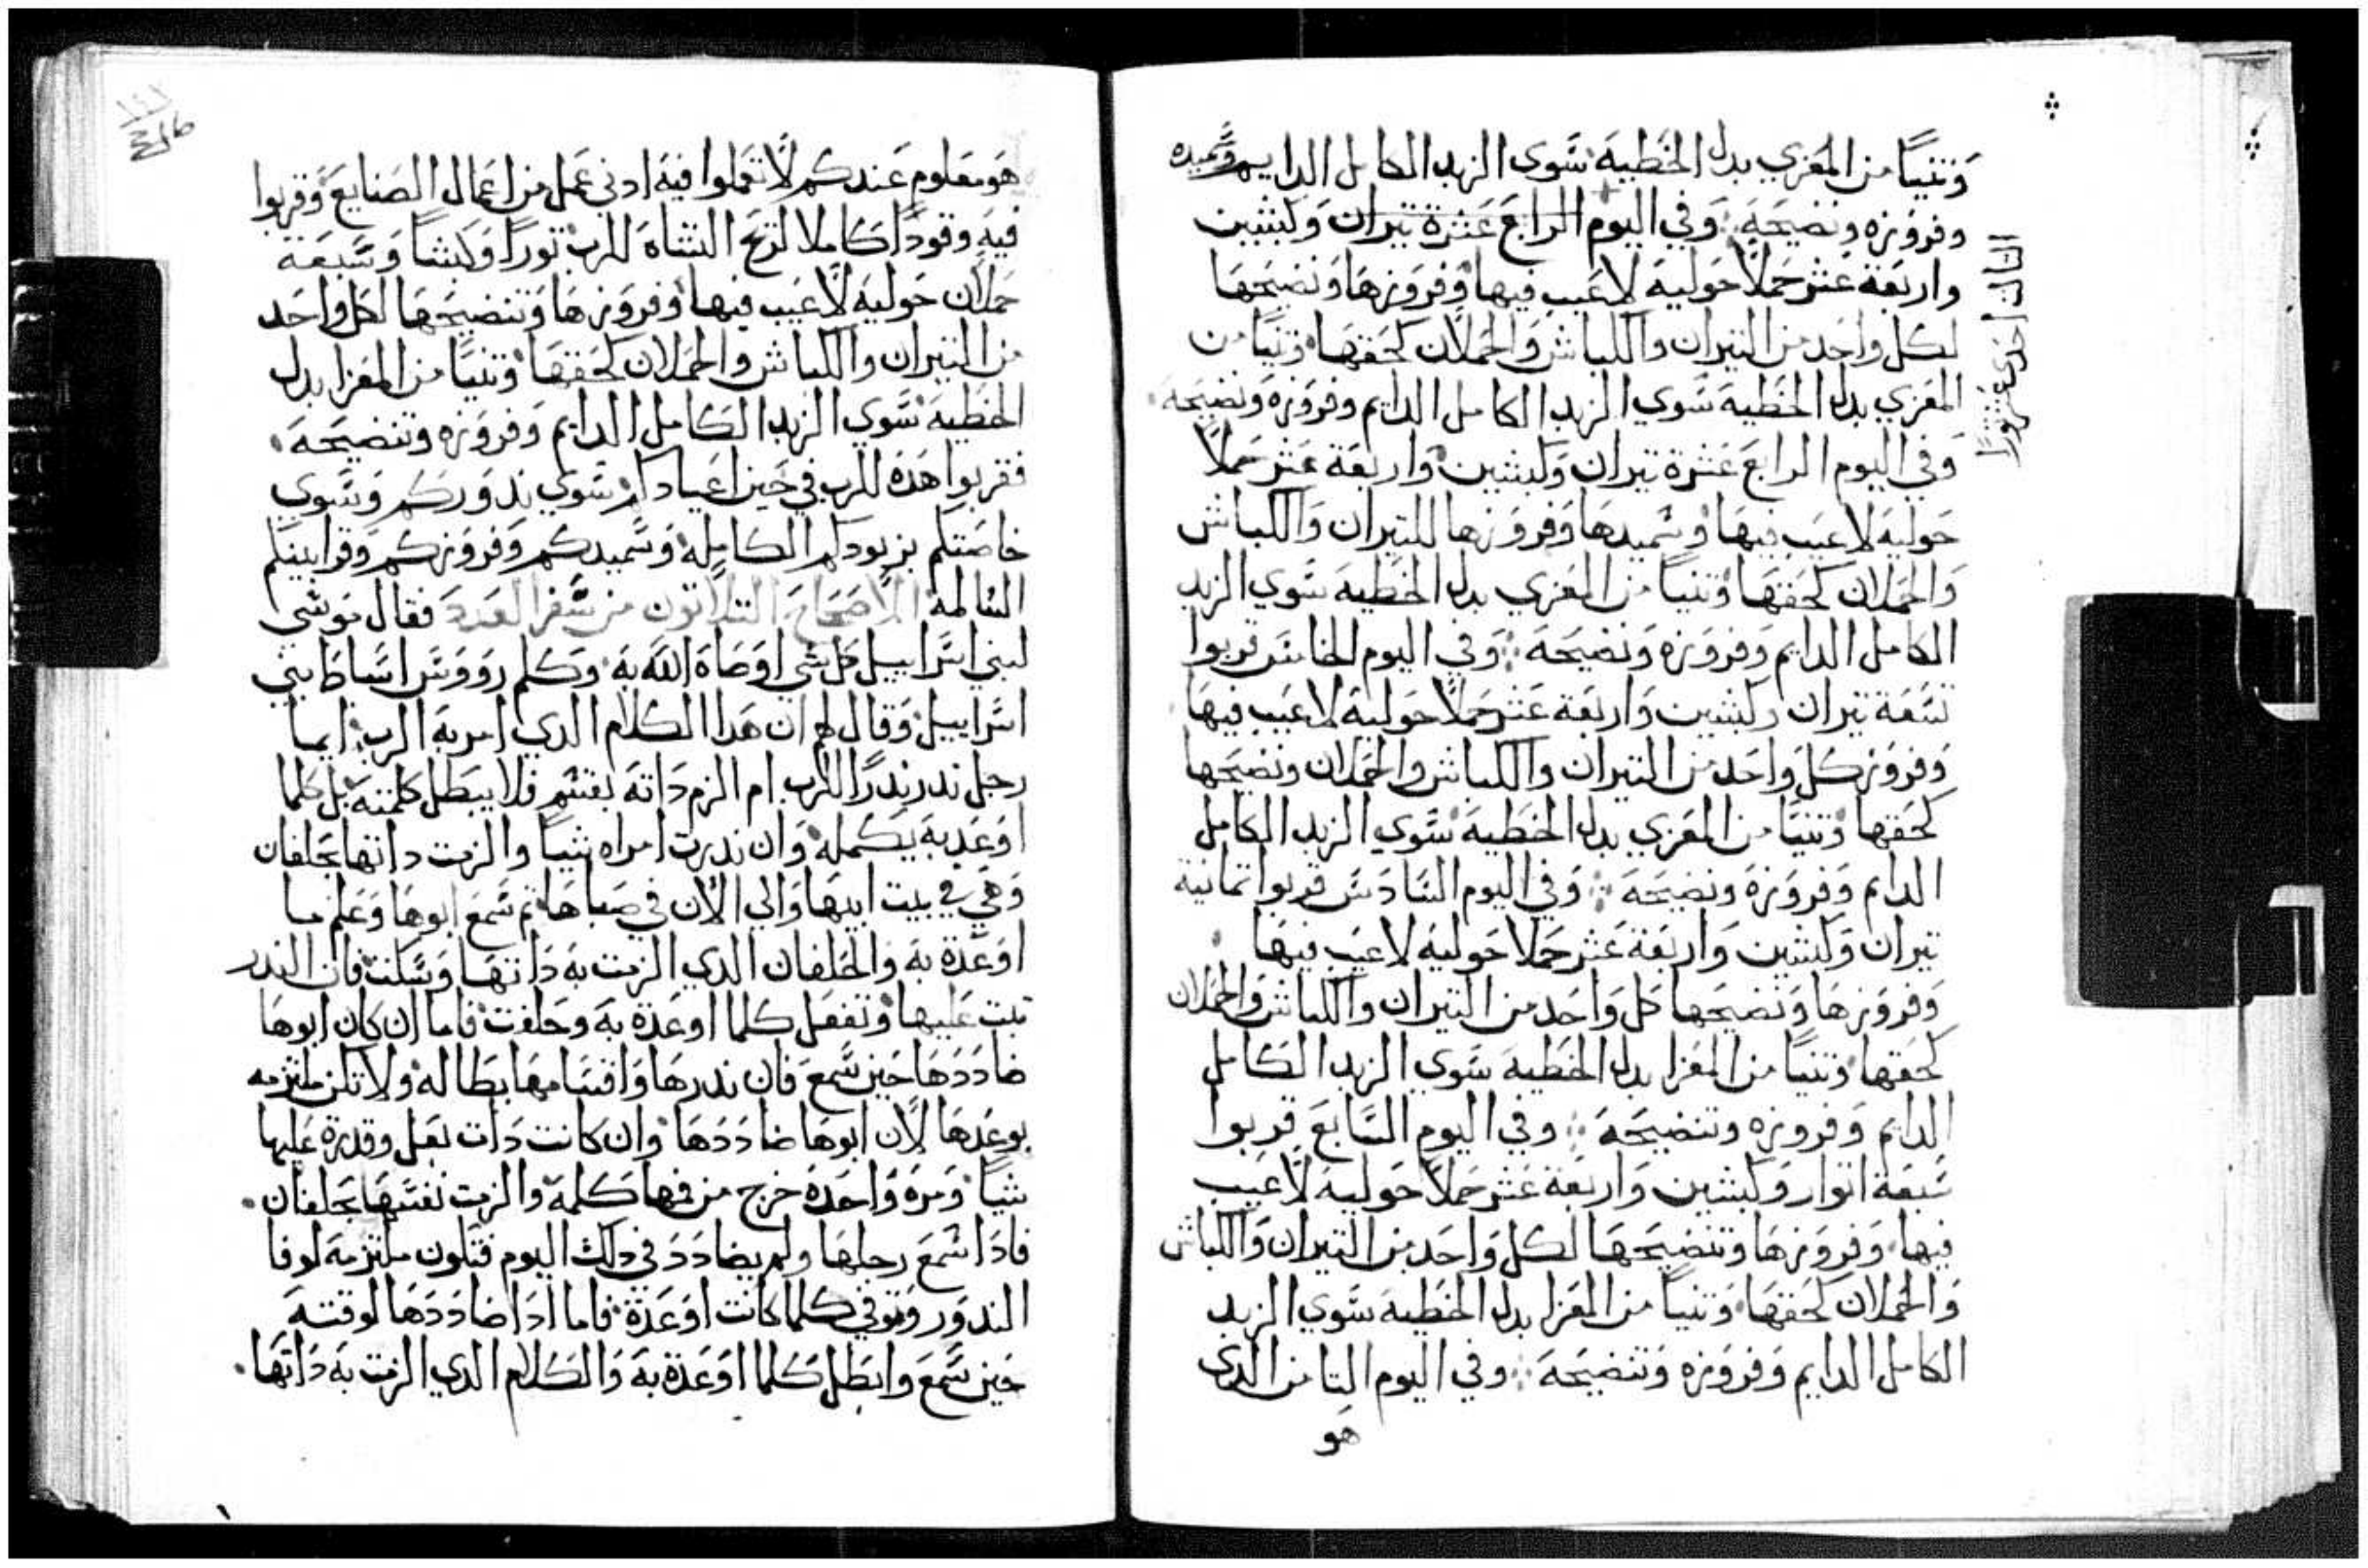 وتنيًا من المعزي بدل الخطية سوى الزبد الكامل الدايم وسميده
وفروزه ونضيحة ⁘ وفي اليوم الرابع عشرة تيران وكبشين
الثالث احدى عشر ثورًا
واربعة عشر حملًا حولية لا عيب فيها وفروزها ونضيحها
لكل واحد من التيران والكباش والحملان كحقها وتنيًا من
المعزي بدل الخطية سوي الزبد الكامل الدايم وفروزه ونضيحة
وفي اليوم الرابع عشرة تيران وكبشين واربعة عشر حملًا
حولية لا عيب فيها وسميدها وفروزها للتيران والكباش
والحملان كحقها وتنيًا من المعزي بدل الخطية سوي الزبد
الكامل الدايم وفروزه ونضيحة ⁘ وفي اليوم الخامس قربوا
تسعة تيران وكبشين واربعة عشر حملًا حولية لا عيب فيها
وفروز كل واحد من التيران والكباش والحملان ونضيحها
كحقها وتنيًا من المعزي بدل الخطية سوي الزبد الكامل
الدايم وفروزة ونضيحة ⁘ وفي اليوم السادس قربوا تمانية
تيران وكبشين واربعة عشر حملا حولية لا عيب فيها
وفروزها ونضيحها كل واحد من التيران والكباش والحملان
كحقها وتنيًا من المعزا بدل الخطية سوي الزبد الكامل
الدايم وفروزه وتنضيحة ⁘ وفي اليوم السابع قربوا
سبعة اتوار وكبشين واربعة عشر حملًا حولية لا عيب
فيها وفروزها وتنضيحها لكل واحد من التيران والكباش
والحملان كحقها وتنيًا من المعزا بدل الخطية سوي الزبد
الكامل الدايم وفروزه وتنضيحة ⁘ وفي اليوم التامن الدي
هو
هو معلوم عندكم لا تعملوا فيه ادني عمل من اعمال الصنايع وقربوا
فيه وقودًا كاملا لريح النشاه للرب تورًا وكبشا وسبعة
حملان حولية لا عيب فيها وفروزها وتنضيحها لكل واحد
من التيران والكباش والحملان كحقها وتنيًا من المعزا بدل
الخطية سوي الزبد الكامل الدايم وفروزه وتنضيحة
فقربوا هذه للرب في حين اعيادكم سوي ندوركم وسوي
خاصتكم بزبودكم الكامله وسميدكم وفروزكم وقرابينكم
السالمة الاصحاح التلاتون من سفر العدد فقال موسي
لبني اسراييل كل شي اوصاة الله به وكلم رووس اسباط بني
اسراييل وقال لهم ان هدا الكلام الدي امر به الرب ايما
رجل ندر ندرًا للرب ام الزم داته بقسم فلا يبطل كلمته بل كلما
اوعد به يكمله وان ندرت امراه شيا والزمت داتها بحلفان
وهي في بيت ابيها والي الان في صباها تم سمع ابوها وعلم ما
اوعدة به والحلفان الدي الزمت به داتها وسكت فان الندر
تبت عليها وتفعل كلما اوعدة به وحلفت فاما ان كان ابوها
ضاددها حين سمع فان ندرها واقسامها بطاله ولا تكن ملتزمه
بوعدها لان ابوها ضاددها وان كانت دات بعل وقدرة عليها
شيا ومرة واحدة خرج من فها كلمة والزمت نفسها بحلفان
فادا سمع رجلها ولم يضادد في دلك اليوم فتكون ملتزمه لوفا
الندور وتوفي كلما كانت اوعدة فاما ادا ضاددها لوقته
حين سمع وابطل كلما اوعدة به والكلام الدي الزمت به داتها